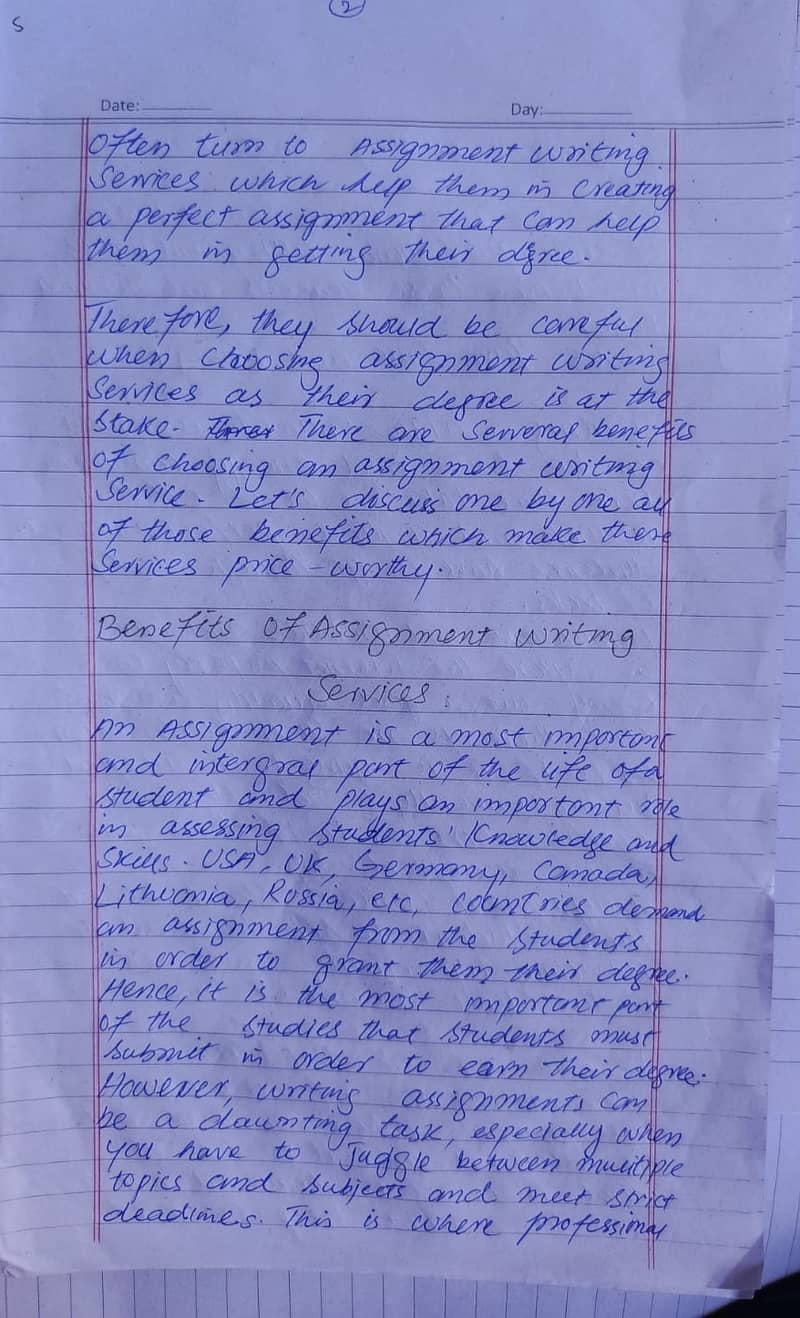 S
2
Date:
Day:
Often turn to Assignment writing
Services which help them in creating
a perfect assignment that can help
them in getting their dgree.
Therefore, they should be careful
when choosing assignment writing
Services as their degree is at the
stake. There are Serveral benefits
of choosing an assignment writing
Service. Let's discuss one by one all
of those benefits which make these
Services price-worthy.
Benefits Of Assignment writing
Services:
An Assignment is a most important
and intergral part of the life of a
student and plays an important role
in assessing students' Knowledge and
Skills. USA, UK, Germany, Canada,
Lithuania, Russia, etc, countries demand
an assignment from the students
in order to grant them their degree.
Hence, it is the most important part
of the studies that students must
submit in order to earn their degree.
However, writing assignments can
be a daunting task, especially when
you have to juggle between multiple
topics and subjects and meet strict
deadlines. This is where professional